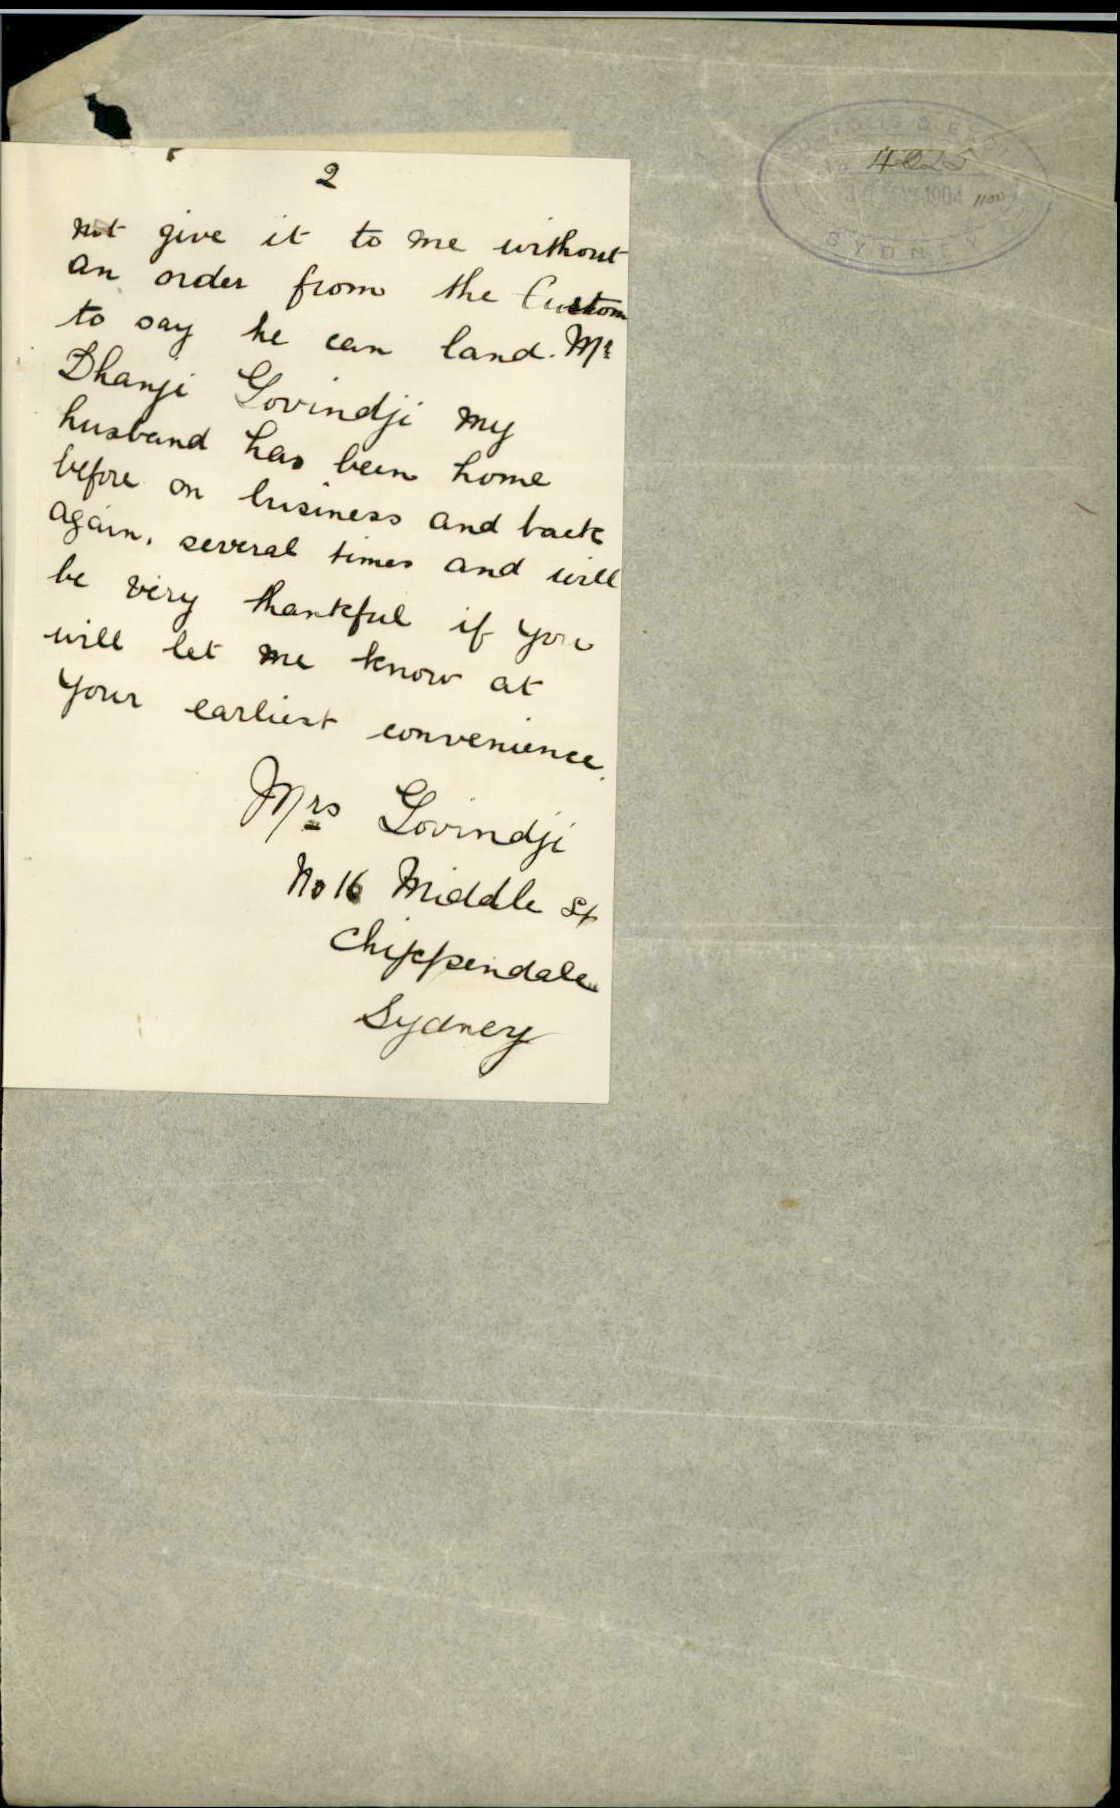 2
not give it to me without
an order from the Custom
to say he can land. Mr
Dhanji Govindji my
husband has been home
before on business and back
again, several times and will
be very thankful if you
will let me know at
your earliest convenience.
Mrs Govindji
No 16 Middle St
Chippendale
Sydney
4025
1904
SYDNEY